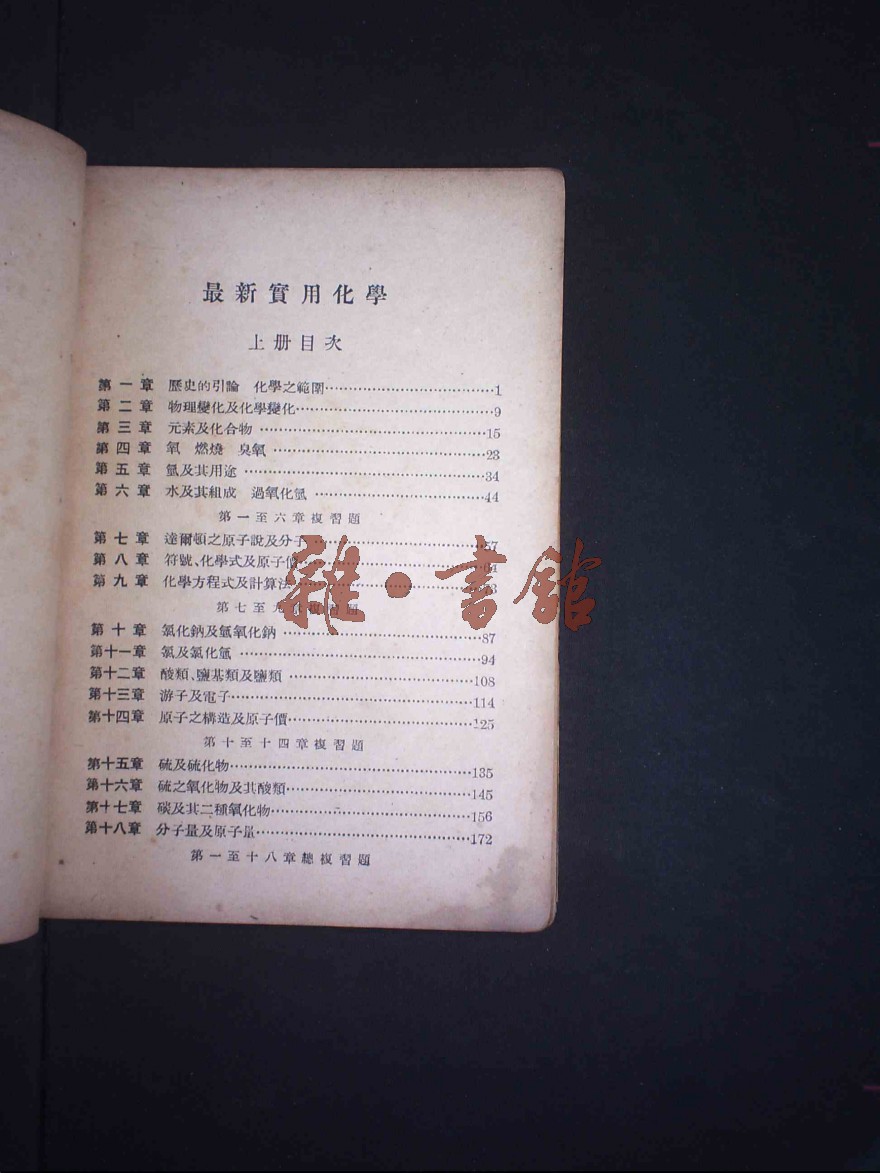 最新實用化學
上册目次
第一章 歷史的引論 化學之範圍……1
第二章 物理變化及化學變化……9
第三章 元素及化合物……15
第四章 氧 燃燒 臭氧……23
第五章 氫及其用途……34
第六章 水及其組成 過氧化氫……44
第一至六章複習題
第七章 達爾頓之原子說及分子……57
第八章 符號、化學式及原子價……
第九章 化學方程式及計算法……
第七至九章複習題
第十章 氯化鈉及氫氧化鈉……87
第十一章 氯及氯化氫……94
第十二章 酸類、鹽基類及鹽類……108
第十三章 游子及電子……114
第十四章 原子之構造及原子價……125
第十至十四章複習題
第十五章 硫及硫化物……135
第十六章 硫之氧化物及其酸類……145
第十七章 碳及其二種氧化物……156
第十八章 分子量及原子量……172
第一至十八章總複習題
雜·書館